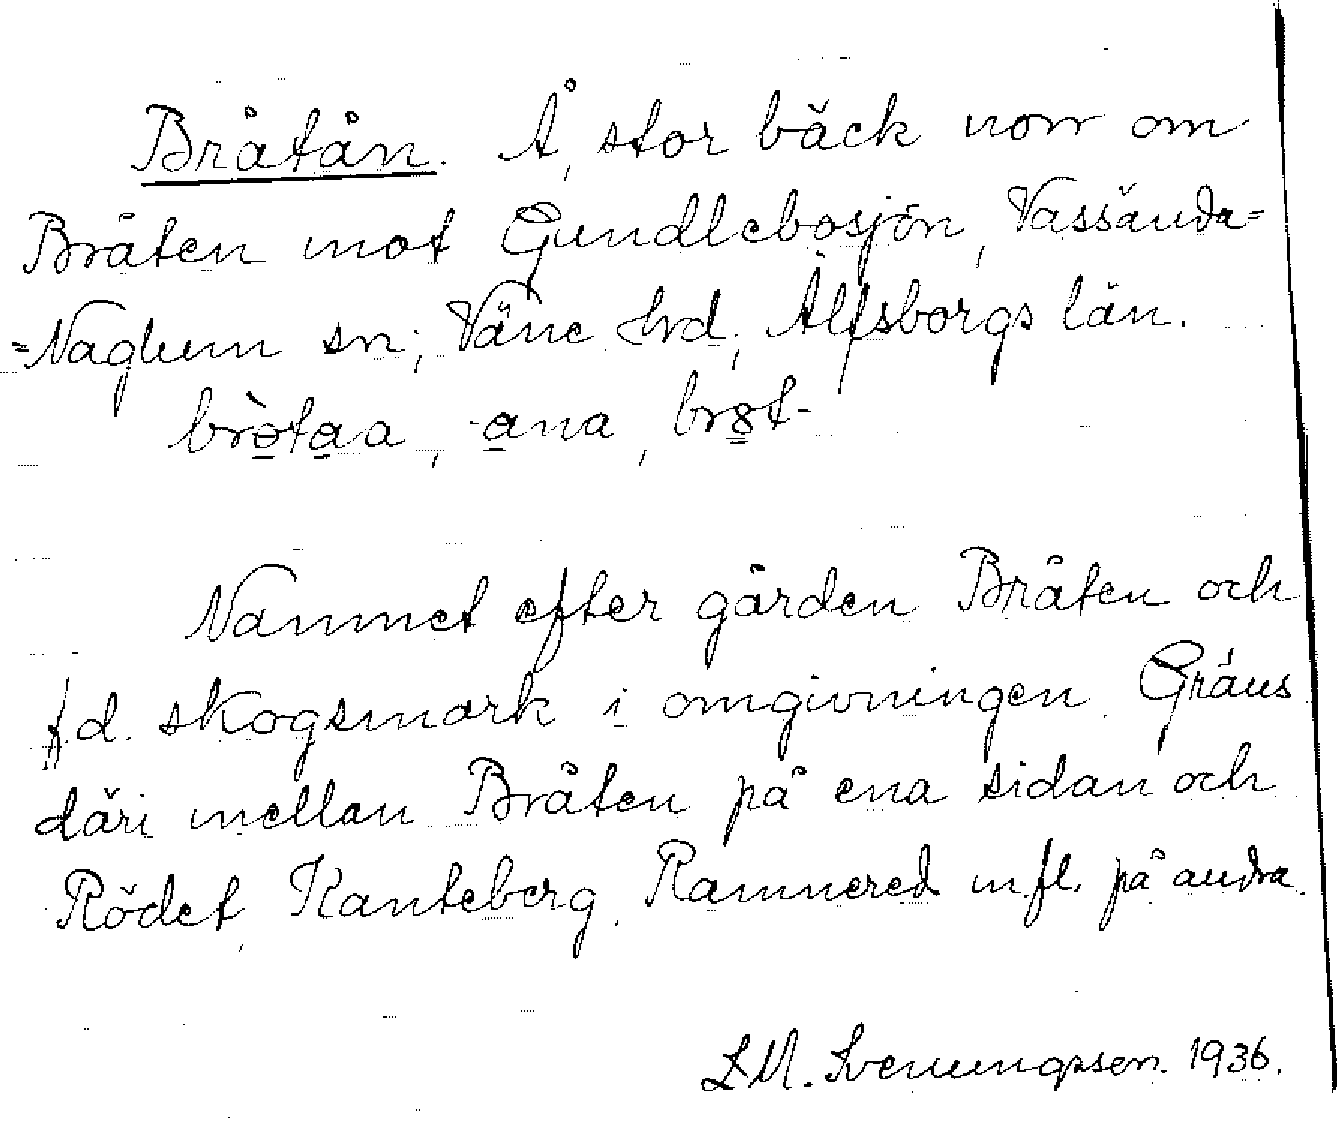 Bråtån. Å, stor bäck norr om
Bråten mot Gundlebosjön, Vassända=
=Naglum sn; Väne hrd; Älfsborgs län.
brò̲ta̲a, -a̲na, br8̲t-
Namnet efter gården Bråten och
f d. skogsmark i omgivningen. Gräns
däri mellan Bråten på ena sidan och
Rödet, Kanteberg, Ramnered m fl. på andra.
L M. Svenungsson. 1936.